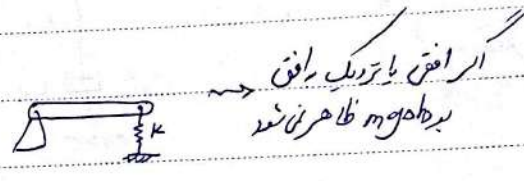 اگر افقی یا نزدیک افق
بود mgh ظاهر نمی شود
K